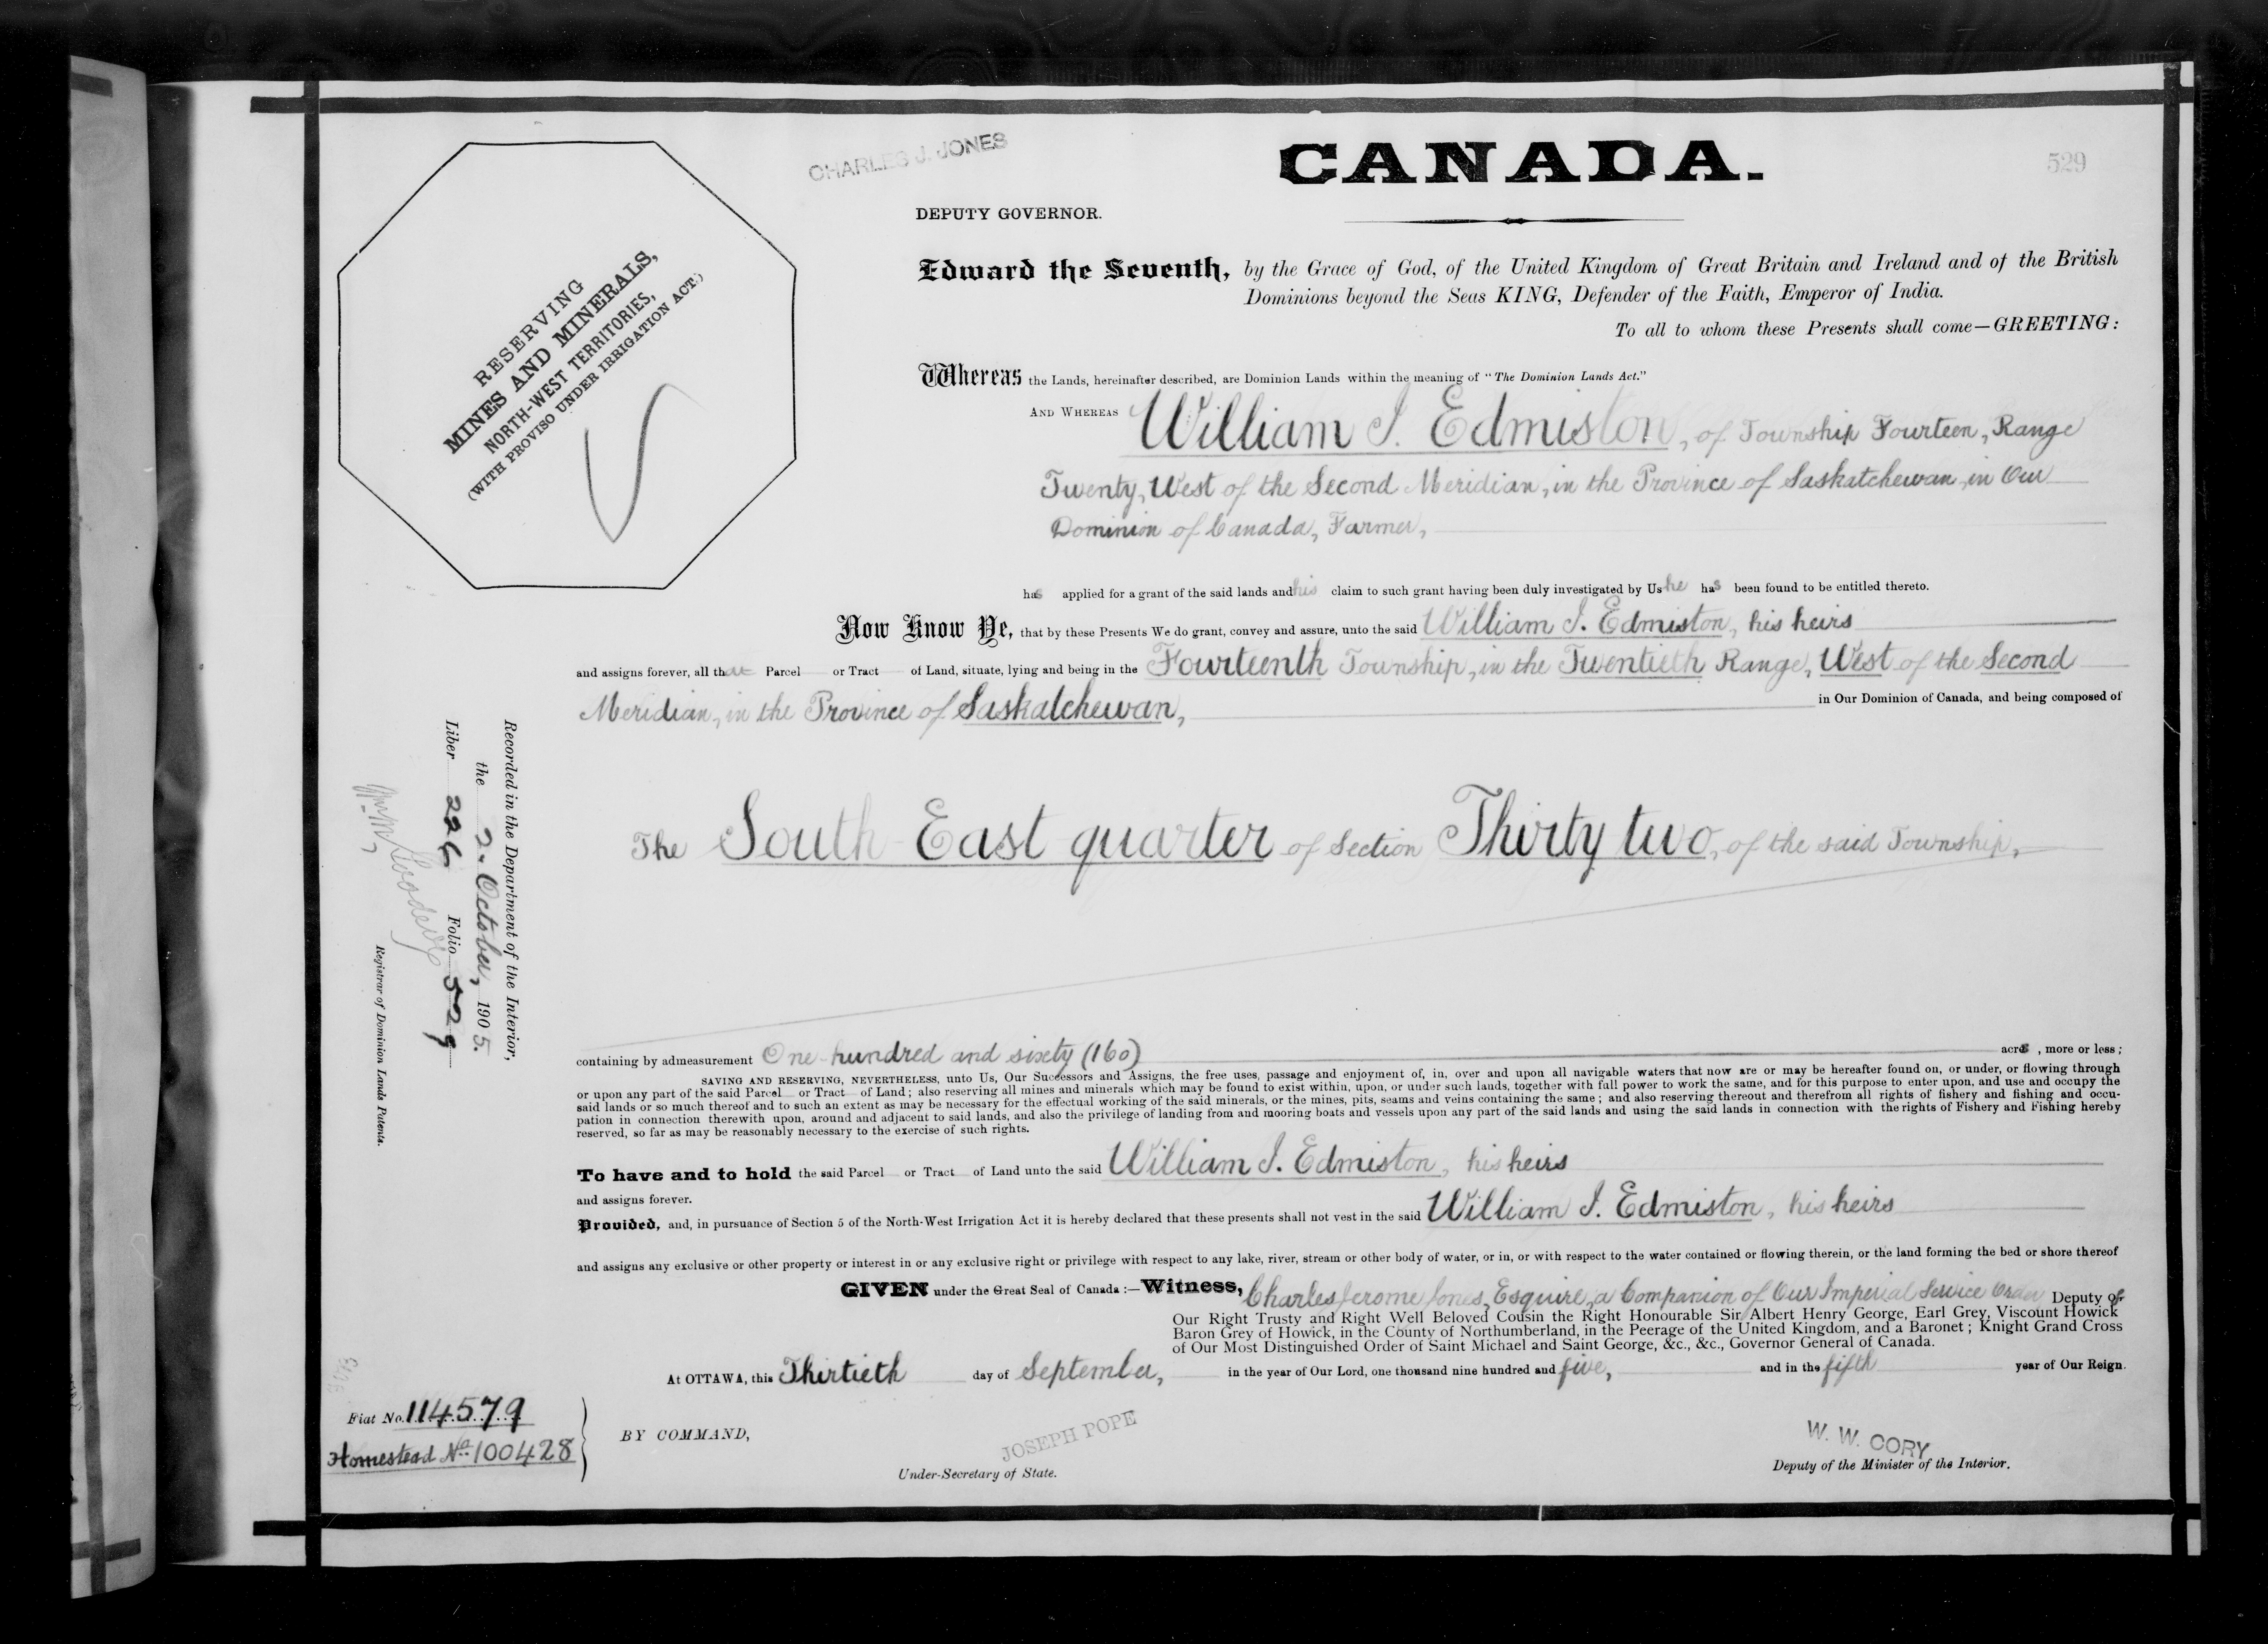 CHARLES J. JONES
CANADA.
529
DEPUTY GOVERNOR.
RESERVING
MINES AND MINERALS,
NORTH-WEST TERRITORIES,
(WITH PROVISO UNDER IRRIGATION ACT.)
Edward the Seventh, by the Grace of God, of the United Kingdom of Great Britain and Ireland and of the British
Dominions beyond the Seas KING, Defender of the Faith, Emperor of India.
To all to whom these Presents shall come—GREETING:
Whereas the Lands, hereinafter described, are Dominion Lands within the meaning of "The Dominion Lands Act."
AND WHEREAS William I. Edmiston, of Township Fourteen, Range
Twenty, West of the Second Meridian, in the Province of Saskatchewan, in Our
Dominion of Canada, Farmer,
has applied for a grant of the said lands and his claim to such grant having been duly investigated by Us he has been found to be entitled thereto.
Now Know Ye, that by these Presents We do grant, convey and assure, unto the said William I. Edmiston, his heirs
and assigns forever, all that Parcel or Tract of Land, situate, lying and being in the Fourteenth Township, in the Twentieth Range, West of the Second
Meridian, in the Province of Saskatchewan, in Our Dominion of Canada, and being composed of
The South East quarter of Section Thirty two, of the said Township,
Recorded in the Department of the Interior,
the 2. October, 1905.
Liber 226 Folio 529
Registrar of Dominion Lands Patents.
containing by admeasurement One hundred and sixty (160) acres, more or less;
SAVING AND RESERVING, NEVERTHELESS, unto Us, Our Successors and Assigns, the free uses, passage and enjoyment of, in, over and upon all navigable waters that now are or may be hereafter found on, or under, or flowing through
or upon any part of the said Parcel or Tract of Land; also reserving all mines and minerals which may be found to exist within, upon, or under such lands, together with full power to work the same, and for this purpose to enter upon, and use and occupy the
said lands or so much thereof and to such an extent as may be necessary for the effectual working of the said minerals, or the mines, pits, seams and veins containing the same; and also reserving thereout and therefrom all rights of fishery and fishing and occu-
pation in connection therewith upon, around and adjacent to said lands, and also the privilege of landing from and mooring boats and vessels upon any part of the said lands and using the said lands in connection with the rights of Fishery and Fishing hereby
reserved, so far as may be reasonably necessary to the exercise of such rights.
To have and to hold the said Parcel or Tract of Land unto the said William I. Edmiston, his heirs
and assigns forever.
Provided, and, in pursuance of Section 5 of the North-West Irrigation Act it is hereby declared that these presents shall not vest in the said William I. Edmiston, his heirs
and assigns any exclusive or other property or interest in or any exclusive right or privilege with respect to any lake, river, stream or other body of water, or in, or with respect to the water contained or flowing therein, or the land forming the bed or shore thereof
GIVEN under the Great Seal of Canada :—Witness, Charles Jerome Jones, Esquire, a Companion of Our Imperial Service Order Deputy of
Our Right Trusty and Right Well Beloved Cousin the Right Honourable Sir Albert Henry George, Earl Grey, Viscount Howick
Baron Grey of Howick, in the County of Northumberland, in the Peerage of the United Kingdom, and a Baronet; Knight Grand Cross
of Our Most Distinguished Order of Saint Michael and Saint George, &c., &c., Governor General of Canada.
At OTTAWA, this Thirtieth day of September, in the year of Our Lord, one thousand nine hundred and five, and in the fifth year of Our Reign.
Fiat No. 114579
Homestead No. 100428
BY COMMAND,
JOSEPH POPE
Under-Secretary of State.
W. W. CORY
Deputy of the Minister of the Interior.